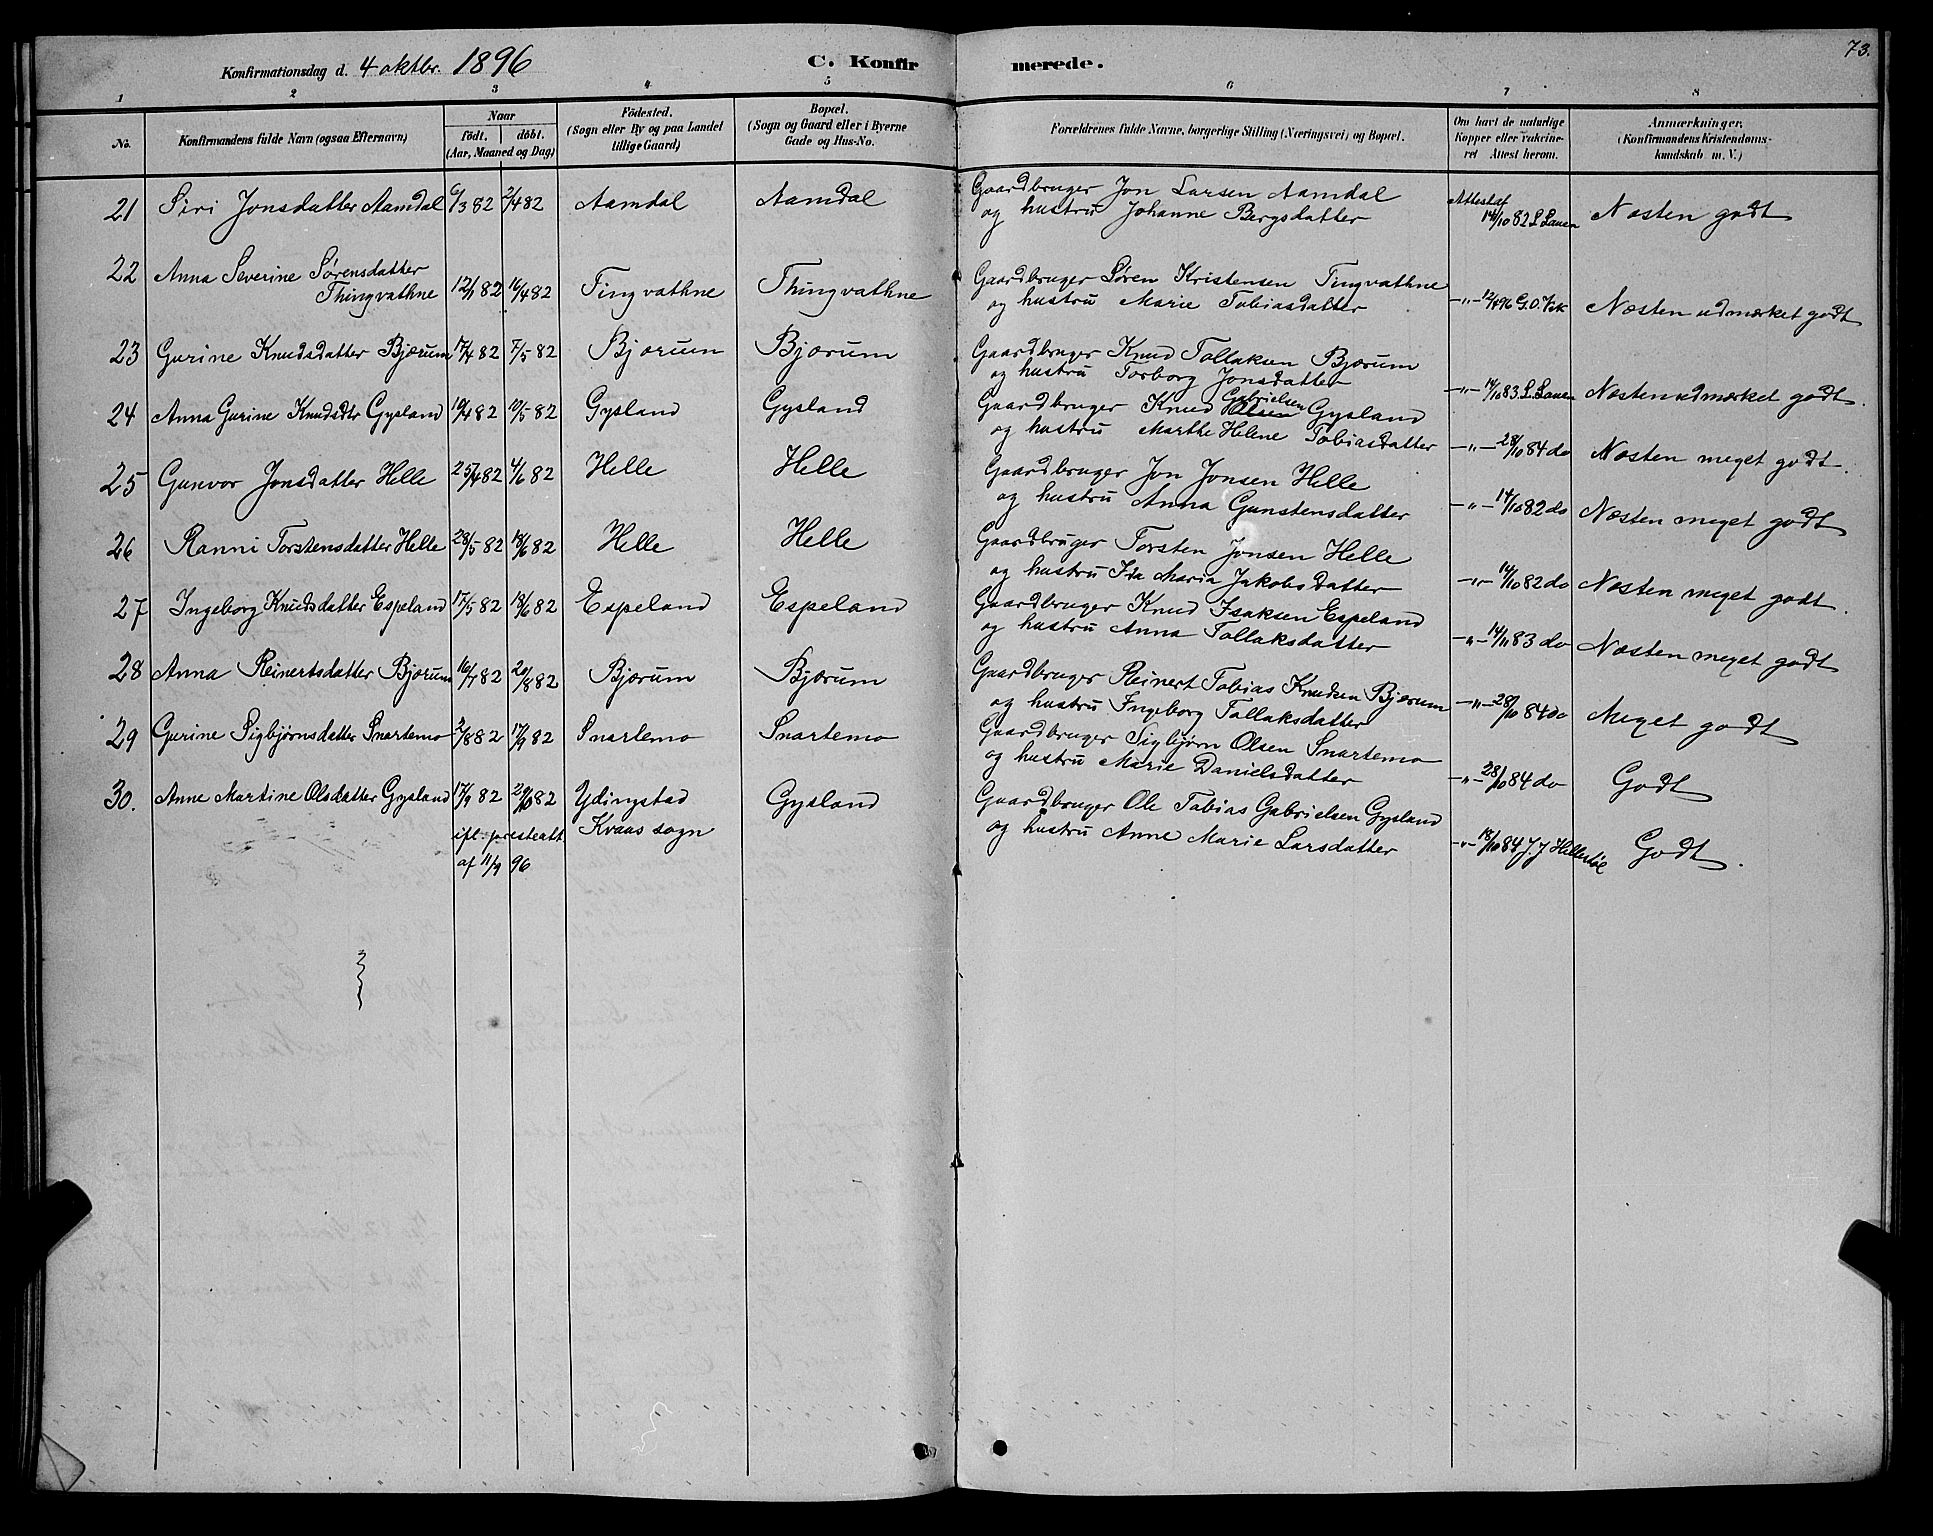 73.
Konfirmationsdag d. 4 oktbr. 1896
C. Konfirmerede.
1 2 3 4 5 6 7 8
No.
Konfirmandens fulde Navn (ogsaa Efternavn)
Naar
födt. döbt.
(Aar, Maaned og Dag)
Födested.
(Sogn eller By og paa Landet
tillige Gaard)
Bopæl.
(Sogn og Gaard eller i Byerne
Gade og Hus-No.
Forældrenes fulde Navne, borgerlige Stilling (Næringsvei) og Bopæl.
Om havt de naturlige
Kopper eller vakcine-
ret Attest herom.
Anmærkninger,
(Konfirmandens Kristendoms-
kundskab m. V.)
21 Siri Jonsdatter Aamdal 6/3 82 2/4 82 Aamdal Aamdal
Gaardbruger Jon Larsen Aamdal
og hustru Johanne Bergsdatter
Attest af
14/10 82 L. Lauen Næsten godt
22 Anna Severine Sørensdatter
Thingvathne 12/1 82 16/4 82 Tingvathne Thingvathne
Gaardbruger Søren Kristensen Tingvathne
og hustru Marie Tobiasdatter
-"- 12/4 96 G.O. Vik Næsten udmærket godt
23 Gurine Knudsdatter Bjærum 17/4 82 7/5 82 Bjærum Bjærum
Gaardbruger Knud Tollaksen Bjærum
og hustru Torborg Jonsdatter
-"- 14/10 83 L. Lauen Næsten udmærket godt.
24 Anna Gurine Knudsdtr Gysland 19/4 82 19/5 82 Gysland Gysland
Gaardbruger Knud Olsen Gabrielsen Gysland
og hustru Marthe Helene Tobiasdatter
-"- 28/10 84 do Næsten meget godt.
25 Gunvor Jonsdatter Helle 25/4 82 4/6 82 Helle Helle
Gaardbruger Jon Jonsen Helle
og hustru Anna Gunstensdatter
-"- 14/10 82 do Næsten meget godt
26 Ranni Torstensdatter Helle 28/5 82 18/6 82 Helle Helle
Gaardbruger Torsten Jonsen Helle
og hustru Ida Maria Jakobsdatter
-"- 14/10 82 do Næsten meget godt.
27 Ingeborg Knudsdatter Espeland 17/5 82 18/6 82 Espeland Espeland
Gaardbruger Knud Isaksen Espeland
og hustru Anna Tollaksdatter
-"- 14/11 83 do Næsten meget godt
28 Anna Reinertsdatter Bjærum 16/7 82 20/8 82 Bjærum Bjærum
Gaardbruger Reinert Tobias Knudsen Bjærum
og hustru Ingeborg Tollaksdatter
-"- 28/10 84 do Meget godt
29 Gurine Sigbjørnsdatter Snartemo 2/8 82 17/9 82 Snartemo Snartemo
Gaardbruger Sigbjørn Olsen Snartemo
og hustru Marie Danielsdatter
-"- 28/10 84 do Godt
30. Anne Martine Olsdatter Gysland 17/9 82 29/10 82 Ydingstad Gysland
ifl. presteatt. Kvaas sogn
af 11/9 96
Gaardbruger Ole Tobias Gabrielsen Gysland
og hustru Anne Marie Larsdatter
-"- 18/10 84 J. J Hillestøl Godt.